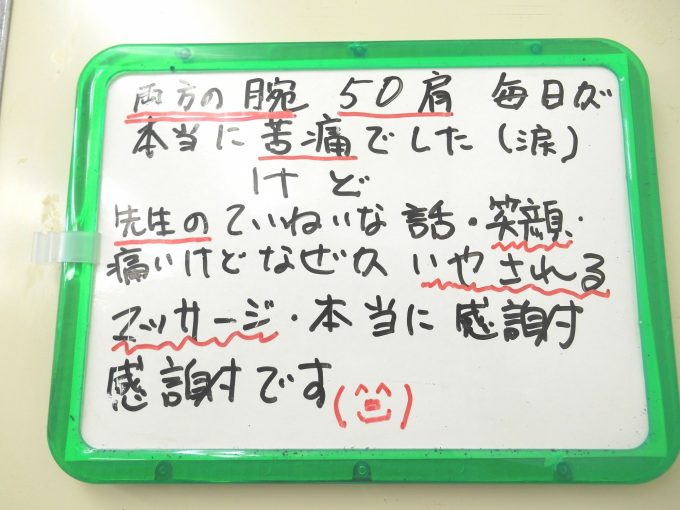 両方の腕 50肩 毎日が
本当に苦痛でした(涙)
けど
先生のていねいな話・笑顔・
痛いけどなぜか いやされる
マッサージ・本当に感謝
感謝です(^^)